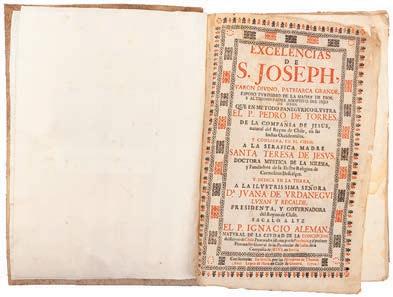 EXCELENCIAS
DE
S. JOSEPH,
VARON DIVINO, PATRIARCA GRANDE,
ESPOSO PURISSIMO DE LA MADRE DE DIOS,
Y ALTISSIMO PADRE ADOPTIVO DEL HIJO
DE DIOS,
QUE EN METODO PANEGYRICO ILUSTRA
EL P. PEDRO DE TORRES,
DE LA COMPAÑIA DE JESUS,
natural del Reyno de Chile, en las
Indias Occidentales.
Y CONSAGRA EN EL CIELO
A LA SERAFICA MADRE
SANTA TERESA DE JESUS,
DOCTORA MYSTICA DE LA IGLESIA,
y Fundadora de la Religion de
Carmelitas Descalços.
Y DEDICA EN LA TIERRA,
A LA ILUSTRISSIMA SEÑORA
Dª JUANA DE URDANEGUI
LUXAN Y RECALDE,
PRESIDENTA, Y GOVERNADORA
del Reyno de Chile.
SACALO A LUZ
EL P. IGNACIO ALEMAN,
NATURAL DE LA CIUDAD DE LA CONCEPCION